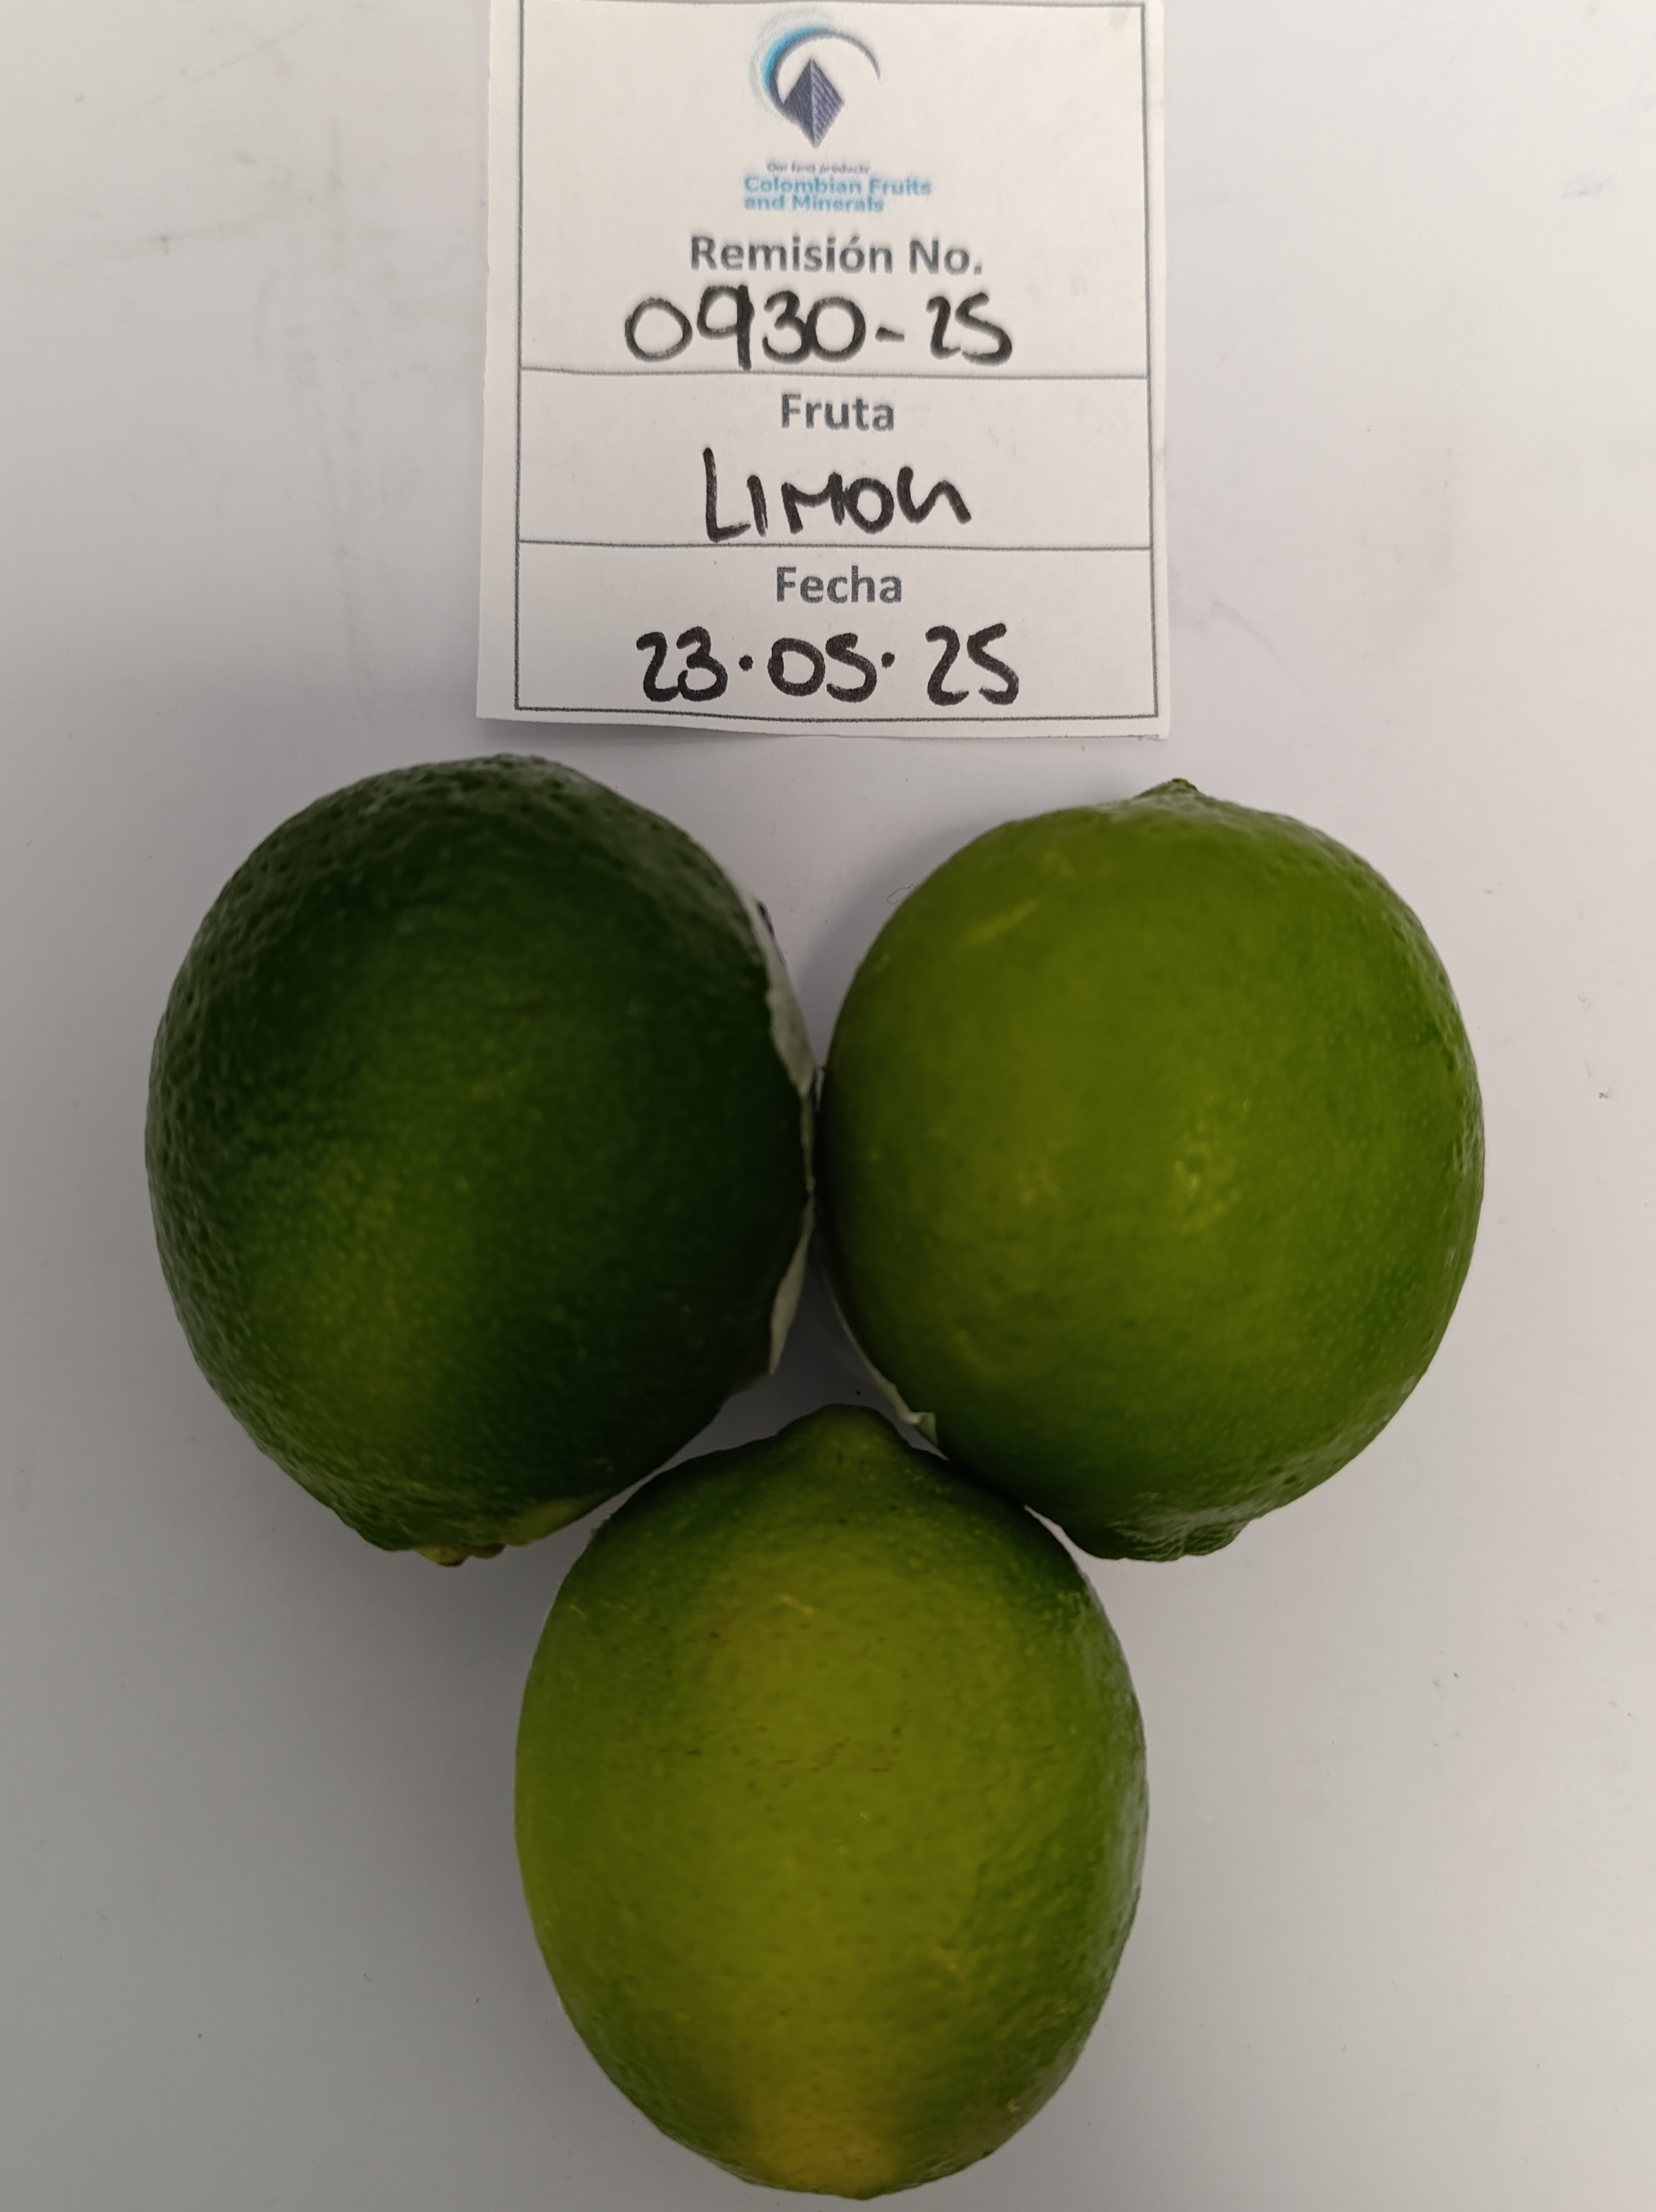 Our best products
Colombian Fruits
and Minerals
Remisión No.
0930-25
Fruta
LIMON
Fecha
23.05.25